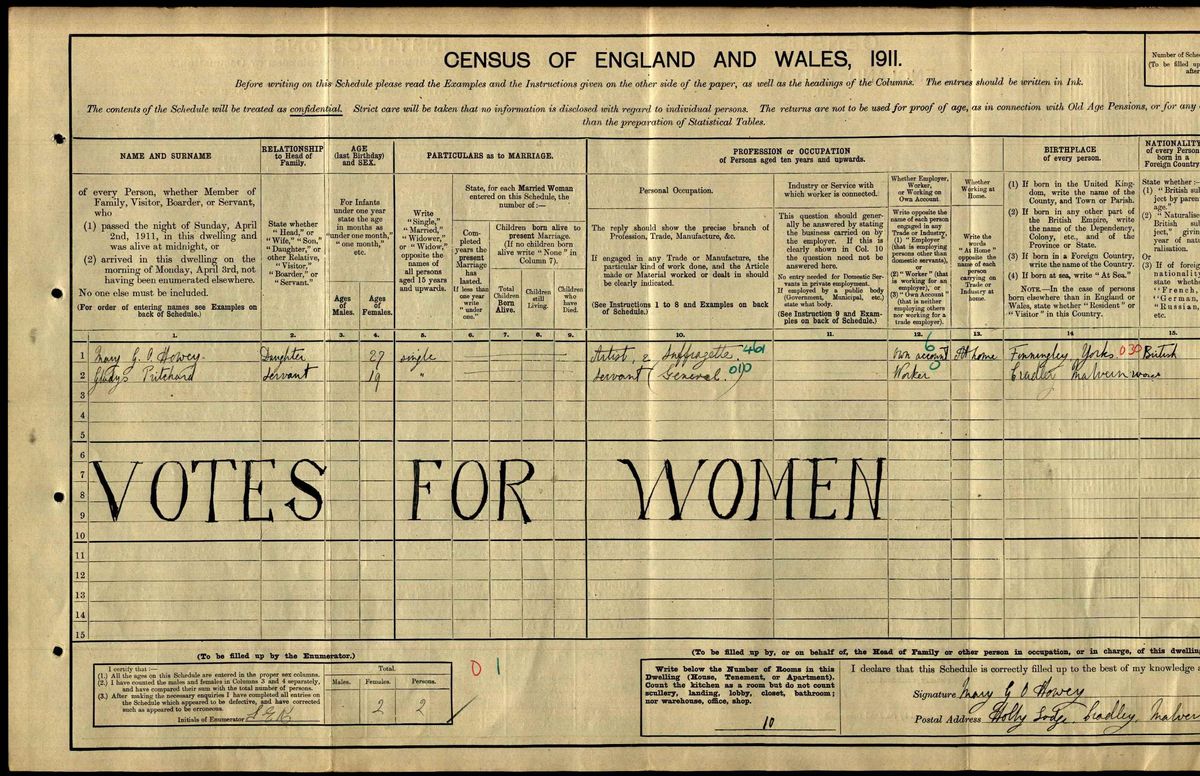 CENSUS OF ENGLAND AND WALES, 1911.
Number of Sche
(To be filled up
after
Before writing on this Schedule please read the Examples and the Instructions given on the other side of the paper, as well as the headings of the Columns. The entries should be written in Ink.
The contents of the Schedule will be treated as confidential. Strict care will be taken that no information is disclosed with regard to individual persons. The returns are not to be used for proof of age, as in connection with Old Age Pensions, or for any
than the preparation of Statistical Tables.
NAME AND SURNAME
RELATIONSHIP
to Head of
Family.
AGE
(last Birthday)
and SEX.
PARTICULARS as to MARRIAGE.
PROFESSION or OCCUPATION
of Persons aged ten years and upwards.
BIRTHPLACE
of every person.
NATIONALITY
of every Person
born in a
Foreign Country
of every Person, whether Member of
Family, Visitor, Boarder, or Servant,
who
(1) passed the night of Sunday, April
2nd, 1911, in this dwelling and
was alive at midnight, or
(2) arrived in this dwelling on the
morning of Monday, April 3rd, not
having been enumerated elsewhere.
No one else must be included.
(For order of entering names see Examples on
back of Schedule.)
State whether
"Head," or
"Wife," "Son,"
"Daughter," or
other Relative,
"Visitor,"
"Boarder," or
"Servant."
For Infants
under one year
state the age
in months as
"under one month,"
"one month,"
etc.
Ages
of
Males.
Ages
of
Females.
Write
"Single,"
"Married,"
"Widower,"
or "Widow,"
opposite the
names of
all persons
aged 15 years
and upwards.
State, for each Married Woman
entered on this Schedule, the
number of:—
Com-
pleted
years the
present
Marriage
has
lasted.
If less than
one year
write
"under
one."
Children born alive to
present Marriage.
(If no children born
alive write "None" in
Column 7).
Total
Children
Born
Alive.
Children
still
Living.
Children
who
have
Died.
Personal Occupation.
The reply should show the precise branch of
Profession, Trade, Manufacture, &c.
If engaged in any Trade or Manufacture, the
particular kind of work done, and the Article
made or Material worked or dealt in should
be clearly indicated.
(See Instructions 1 to 8 and Examples on back
of Schedule.)
Industry or Service with
which worker is connected.
This question should gener-
ally be answered by stating
the business carried on by
the employer. If this is
clearly shown in Col. 10
the question need not be
answered here.
No entry needed for Domestic Ser-
vants in private employment.
If employed by a public body
(Government, Municipal, etc.)
state what body.
(See Instruction 9 and Exam-
ples on back of Schedule.)
Whether Employer,
Worker,
or Working on
Own Account.
Write opposite the
name of each person
engaged in any
Trade or Industry,
(1) "Employer"
(that is employing
persons other than
domestic servants),
or
(2) "Worker" (that
is working for an
employer), or
(3) "Own Account"
(that is neither
employing others
nor working for a
trade employer).
Whether
Working at
Home.
Write the
words
"At Home"
opposite the
name of each
person
carrying on
Trade or
Industry at
home.
(1) If born in the United King-
dom, write the name of the
County, and Town or Parish.
(2) If born in any other part of
the British Empire, write
the name of the Dependency,
Colony, etc., and of the
Province or State.
(3) If born in a Foreign Country,
write the name of the Country.
(4) If born at sea, write "At Sea."
NOTE.—In the case of persons
born elsewhere than in England or
Wales, state whether "Resident" or
"Visitor" in this Country.
State whether :—
(1) "British sub
ject by paren
age."
(2) "Naturalise
British sul
ject," givin
year of natu
ralisation.
Or
(3) If of foreig
nationality
state whethe
"French,
"German,
"Russian,
etc.
1. 2. 3. 4. 5. 6. 7. 8. 9. 10. 11. 12. 13. 14 15.
1 Mary G. O Howey. Daughter 27 single Artist, & Suffragette. 461 6 own account At home Finningley, Yorks. 030 British
2 Gladys Pritchard servant 19 " servant (General.) 010 Worker 0 Cradley Malvern
3
4
5
6
7
8
9
VOTES FOR WOMEN
10
11
12
13
14
15
(To be filled up by the Enumerator.)
I certify that :—
(1.) All the ages on this Schedule are entered in the proper sex columns.
(2.) I have counted the males and females in Columns 3 and 4 separately,
and have compared their sum with the total number of persons.
(3.) After making the necessary enquiries I have completed all entries on
the Schedule which appeared to be defective, and have corrected
such as appeared to be erroneous.
Initials of Enumerator
Total.
Males. Females. Persons.
2 2
0 1
(To be filled up by, or on behalf of, the Head of Family or other person in occupation, or in charge, of this dwelling
Write below the Number of Rooms in this
Dwelling (House, Tenement, or Apartment).
Count the kitchen as a room but do not count
scullery, landing, lobby, closet, bathroom ;
nor warehouse, office, shop.
10
I declare that this Schedule is correctly filled up to the best of my knowledge a
Signature Mary G O Howey
Postal Address Holly Lodge. Cradley, Malver